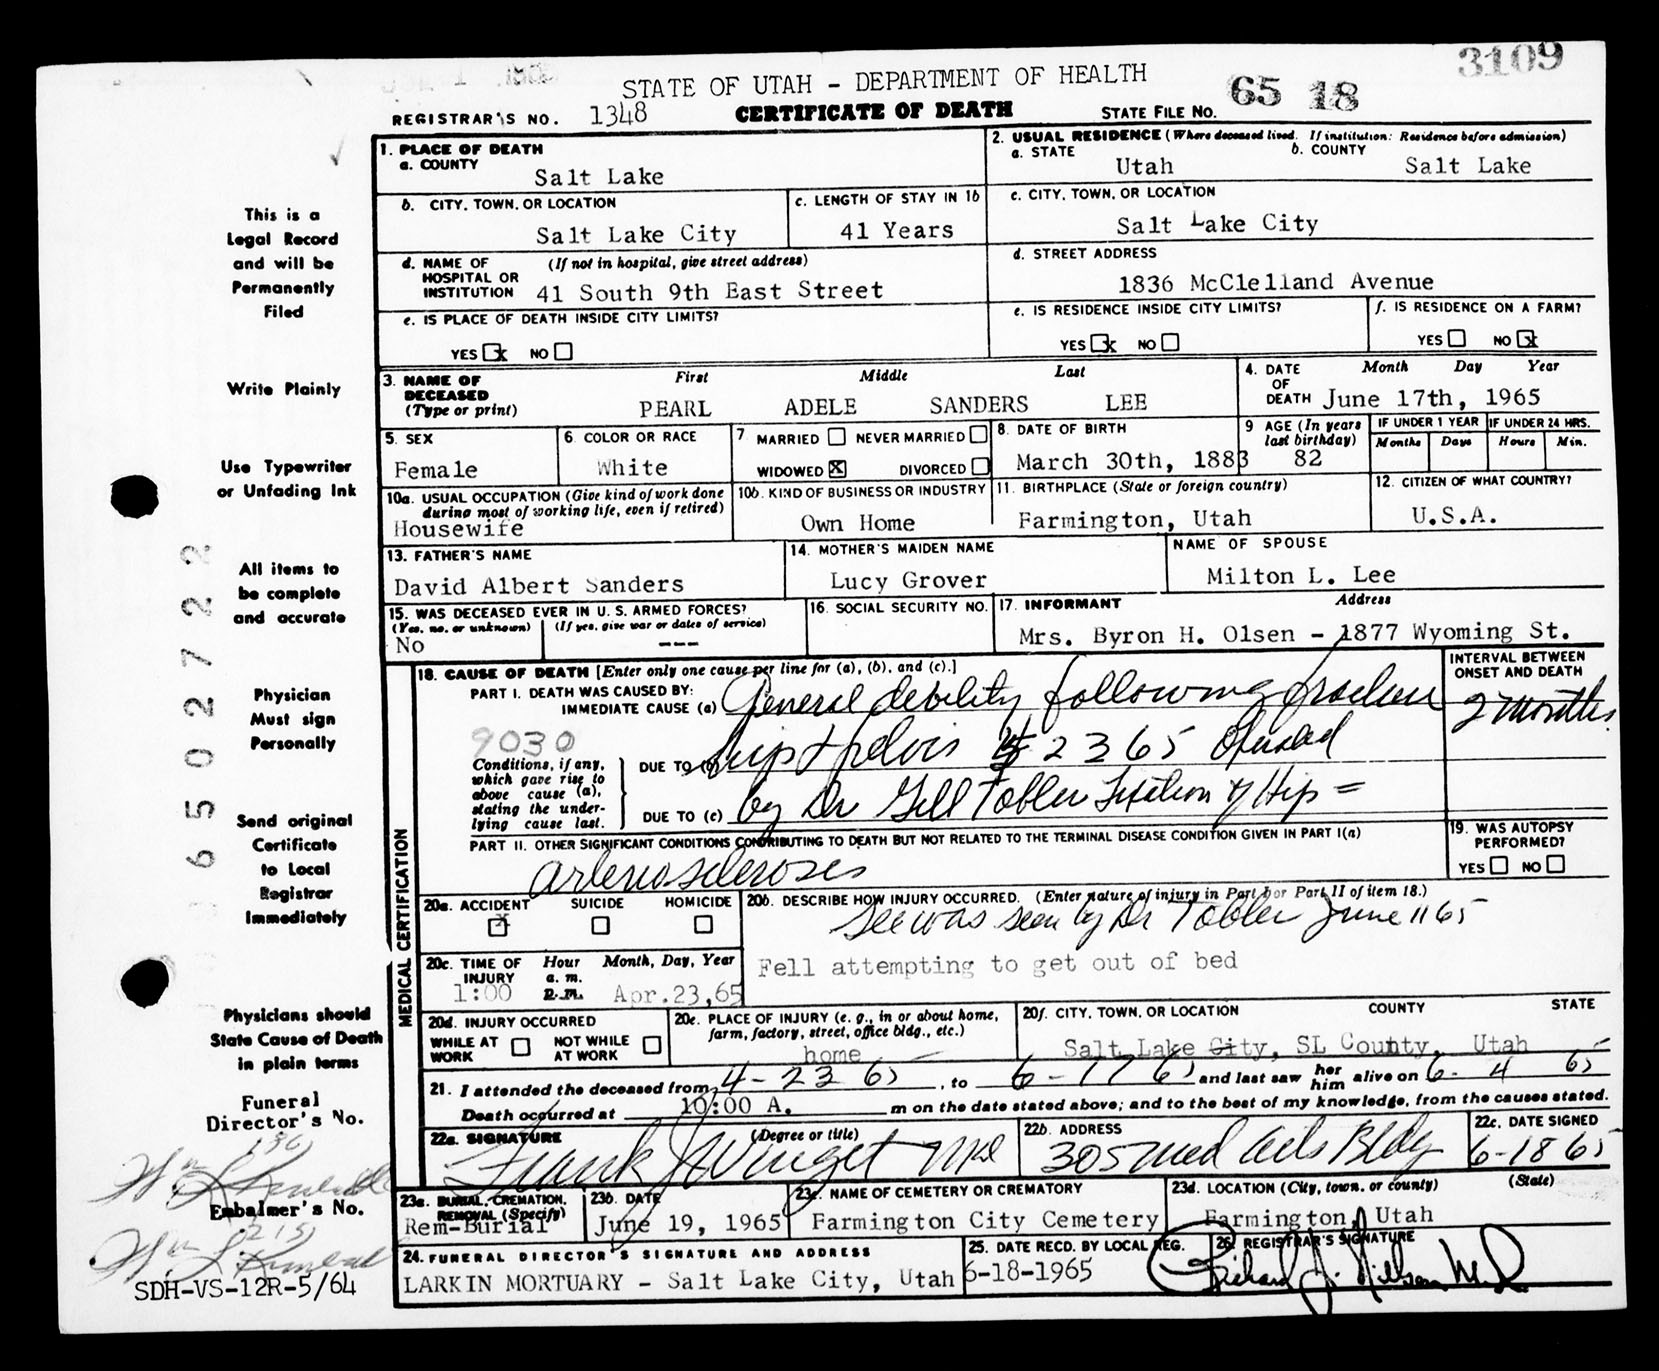 3109
STATE OF UTAH - DEPARTMENT OF HEALTH
REGISTRAR'S NO. 1348 CERTIFICATE OF DEATH STATE FILE NO. 65 18
1. PLACE OF DEATH
a. COUNTY
Salt Lake
2. USUAL RESIDENCE (Where deceased lived. If institution: Residence before admission)
a. STATE b. COUNTY
Utah Salt Lake
b. CITY, TOWN, OR LOCATION
Salt Lake City
c. LENGTH OF STAY IN 1b
41 Years
c. CITY, TOWN, OR LOCATION
Salt Lake City
d. NAME OF HOSPITAL OR INSTITUTION (If not in hospital, give street address)
41 South 9th East Street
d. STREET ADDRESS
1836 McClelland Avenue
e. IS PLACE OF DEATH INSIDE CITY LIMITS?
YES x NO
e. IS RESIDENCE INSIDE CITY LIMITS?
YES x NO
f. IS RESIDENCE ON A FARM?
YES NO x
3. NAME OF DECEASED (Type or print) First Middle Last
PEARL ADELE SANDERS LEE
4. DATE OF DEATH Month Day Year
June 17th, 1965
5. SEX
Female
6. COLOR OR RACE
White
7 MARRIED NEVER MARRIED
WIDOWED X DIVORCED
8. DATE OF BIRTH
March 30th, 1883
9 AGE (In years last birthday)
82
IF UNDER 1 YEAR IF UNDER 24 HRS.
Months Days Hours Min.
10a. USUAL OCCUPATION (Give kind of work done during most of working life, even if retired)
Housewife
10b. KIND OF BUSINESS OR INDUSTRY
Own Home
11. BIRTHPLACE (State or foreign country)
Farmington, Utah
12. CITIZEN OF WHAT COUNTRY?
U.S.A.
13. FATHER'S NAME
David Albert Sanders
14. MOTHER'S MAIDEN NAME
Lucy Grover
NAME OF SPOUSE
Milton L. Lee
15. WAS DECEASED EVER IN U. S. ARMED FORCES?
(Yes, no, or unknown) (If yes, give war or dates of service)
No ---
16. SOCIAL SECURITY NO.
17. INFORMANT Address
Mrs. Byron H. Olsen - 1877 Wyoming St.
MEDICAL CERTIFICATION
18. CAUSE OF DEATH [Enter only one cause per line for (a), (b), and (c).]
INTERVAL BETWEEN ONSET AND DEATH
PART I. DEATH WAS CAUSED BY:
IMMEDIATE CAUSE (a) General debility following fracture 2 months
9030
Conditions, if any, which gave rise to above cause (a), stating the underlying cause last.
DUE TO (b) hip + pelvis 4 23 65 Operated
DUE TO (c) by Dr Gill Tobler Fixation of Hip =
PART II. OTHER SIGNIFICANT CONDITIONS CONTRIBUTING TO DEATH BUT NOT RELATED TO THE TERMINAL DISEASE CONDITION GIVEN IN PART I(a)
arteriosclerosis
19. WAS AUTOPSY PERFORMED?
YES NO
20a. ACCIDENT SUICIDE HOMICIDE
x
20b. DESCRIBE HOW INJURY OCCURRED. (Enter nature of injury in Part I or Part II of item 18.)
See was seen by Dr Tobler June 11 65
Fell attempting to get out of bed
20c. TIME OF INJURY Hour a. m. p. m. Month, Day, Year
1:00 Apr.23,65
20d. INJURY OCCURRED
WHILE AT WORK NOT WHILE AT WORK
20e. PLACE OF INJURY (e. g., in or about home, farm, factory, street, office bldg., etc.)
home
20f. CITY, TOWN, OR LOCATION COUNTY STATE
Salt Lake City, SL County, Utah
21. I attended the deceased from 4-23 65, to 6-17 65 and last saw her him alive on 6-4 65
Death occurred at 10:00 A. m on the date stated above; and to the best of my knowledge, from the causes stated.
22a. SIGNATURE (Degree or title)
Frank J Winget MD
22b. ADDRESS
305 Med Arts Bldg
22c. DATE SIGNED
6-18 65
23a. BURIAL, CREMATION, REMOVAL (Specify)
Rem-Burial
23b. DATE
June 19, 1965
23c. NAME OF CEMETERY OR CREMATORY
Farmington City Cemetery
23d. LOCATION (City, town, or county) (State)
Farmington, Utah
24. FUNERAL DIRECTOR'S SIGNATURE AND ADDRESS
LARKIN MORTUARY - Salt Lake City, Utah
25. DATE RECD. BY LOCAL REG.
6-18-1965
26. REGISTRAR'S SIGNATURE
Richard J. Nilson M.D.
This is a
Legal Record
and will be
Permanently
Filed
Write Plainly
Use Typewriter
or Unfading Ink
All items to
be complete
and accurate
Physician
Must sign
Personally
Send original
Certificate
to Local
Registrar
Immediately
Physicians should
State Cause of Death
in plain terms
Funeral
Director's No.
136
Embalmer's No.
215
SDH-VS-12R-5/64
6502722